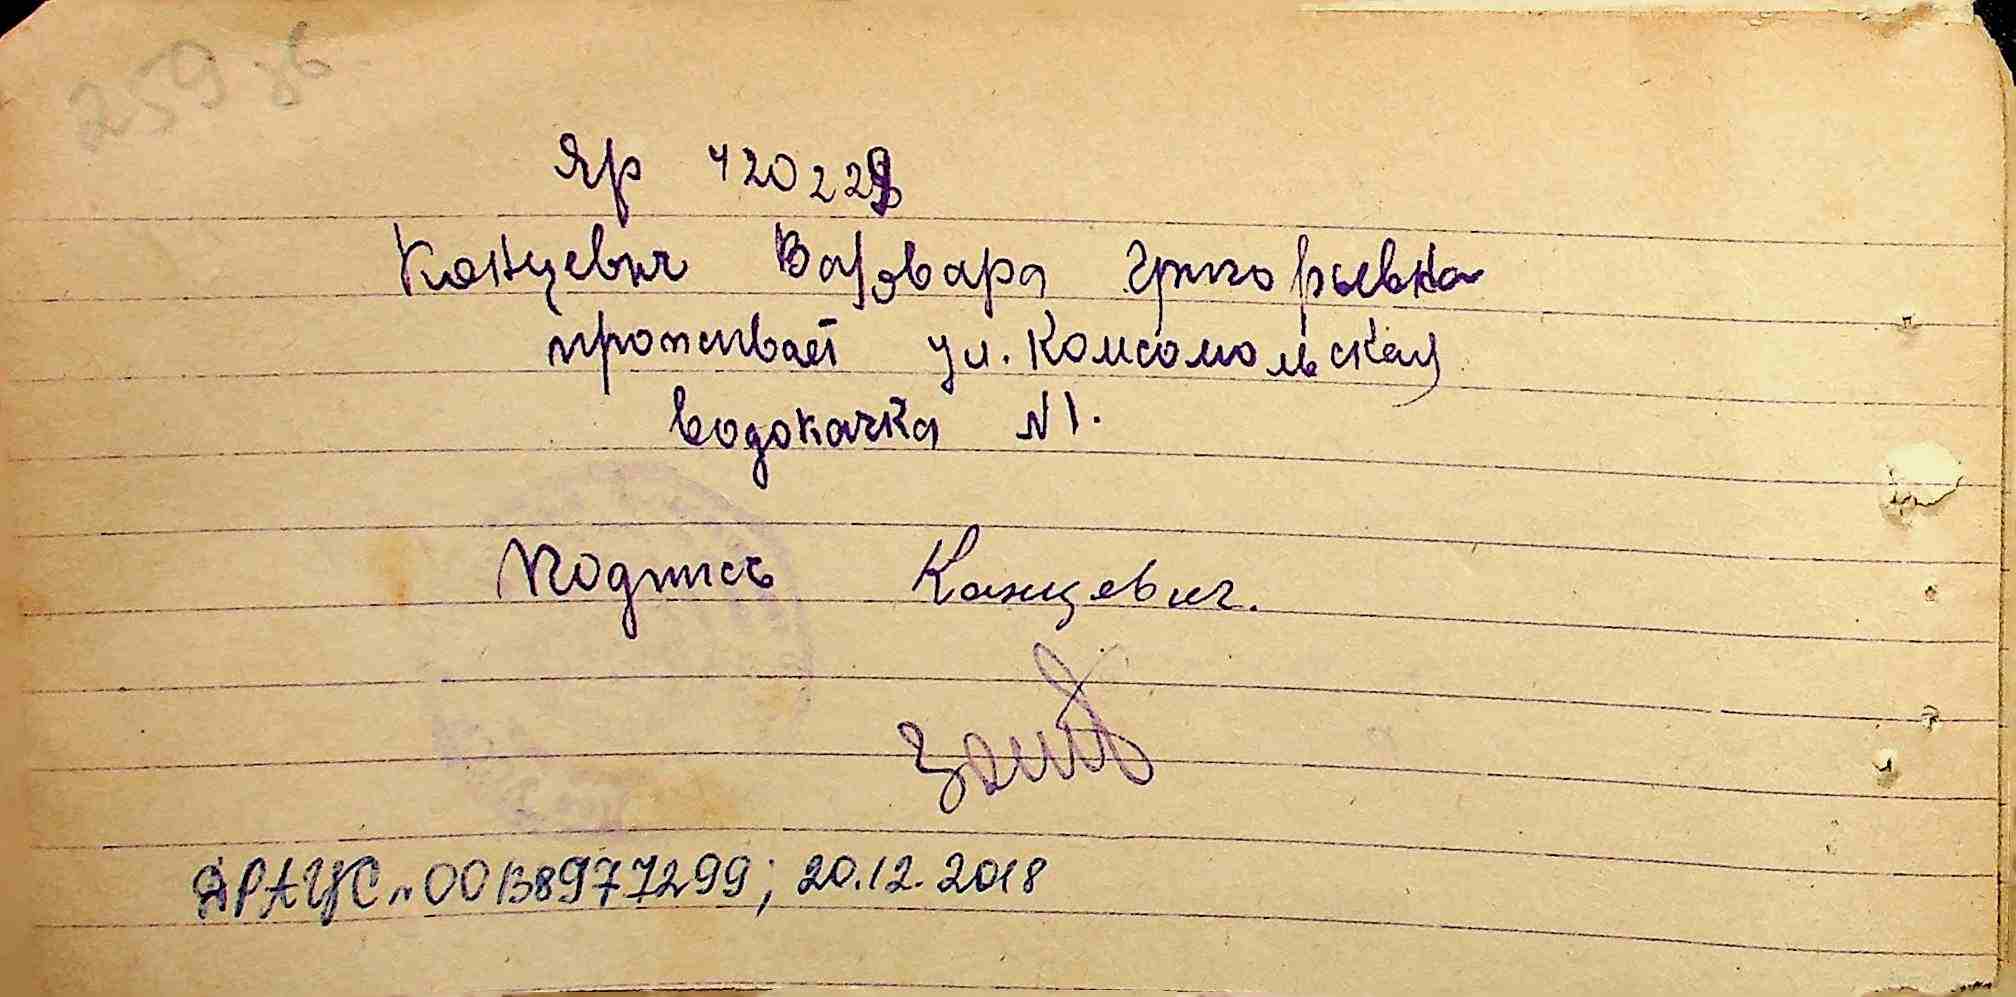 259 зв
Яр 420229
Канцевич Варвара Григорьевна
проживает ул. Комсомольская
водокачка N1.
Подпись Канцевич.
ДРАЦС n 00138977299; 20.12.2018